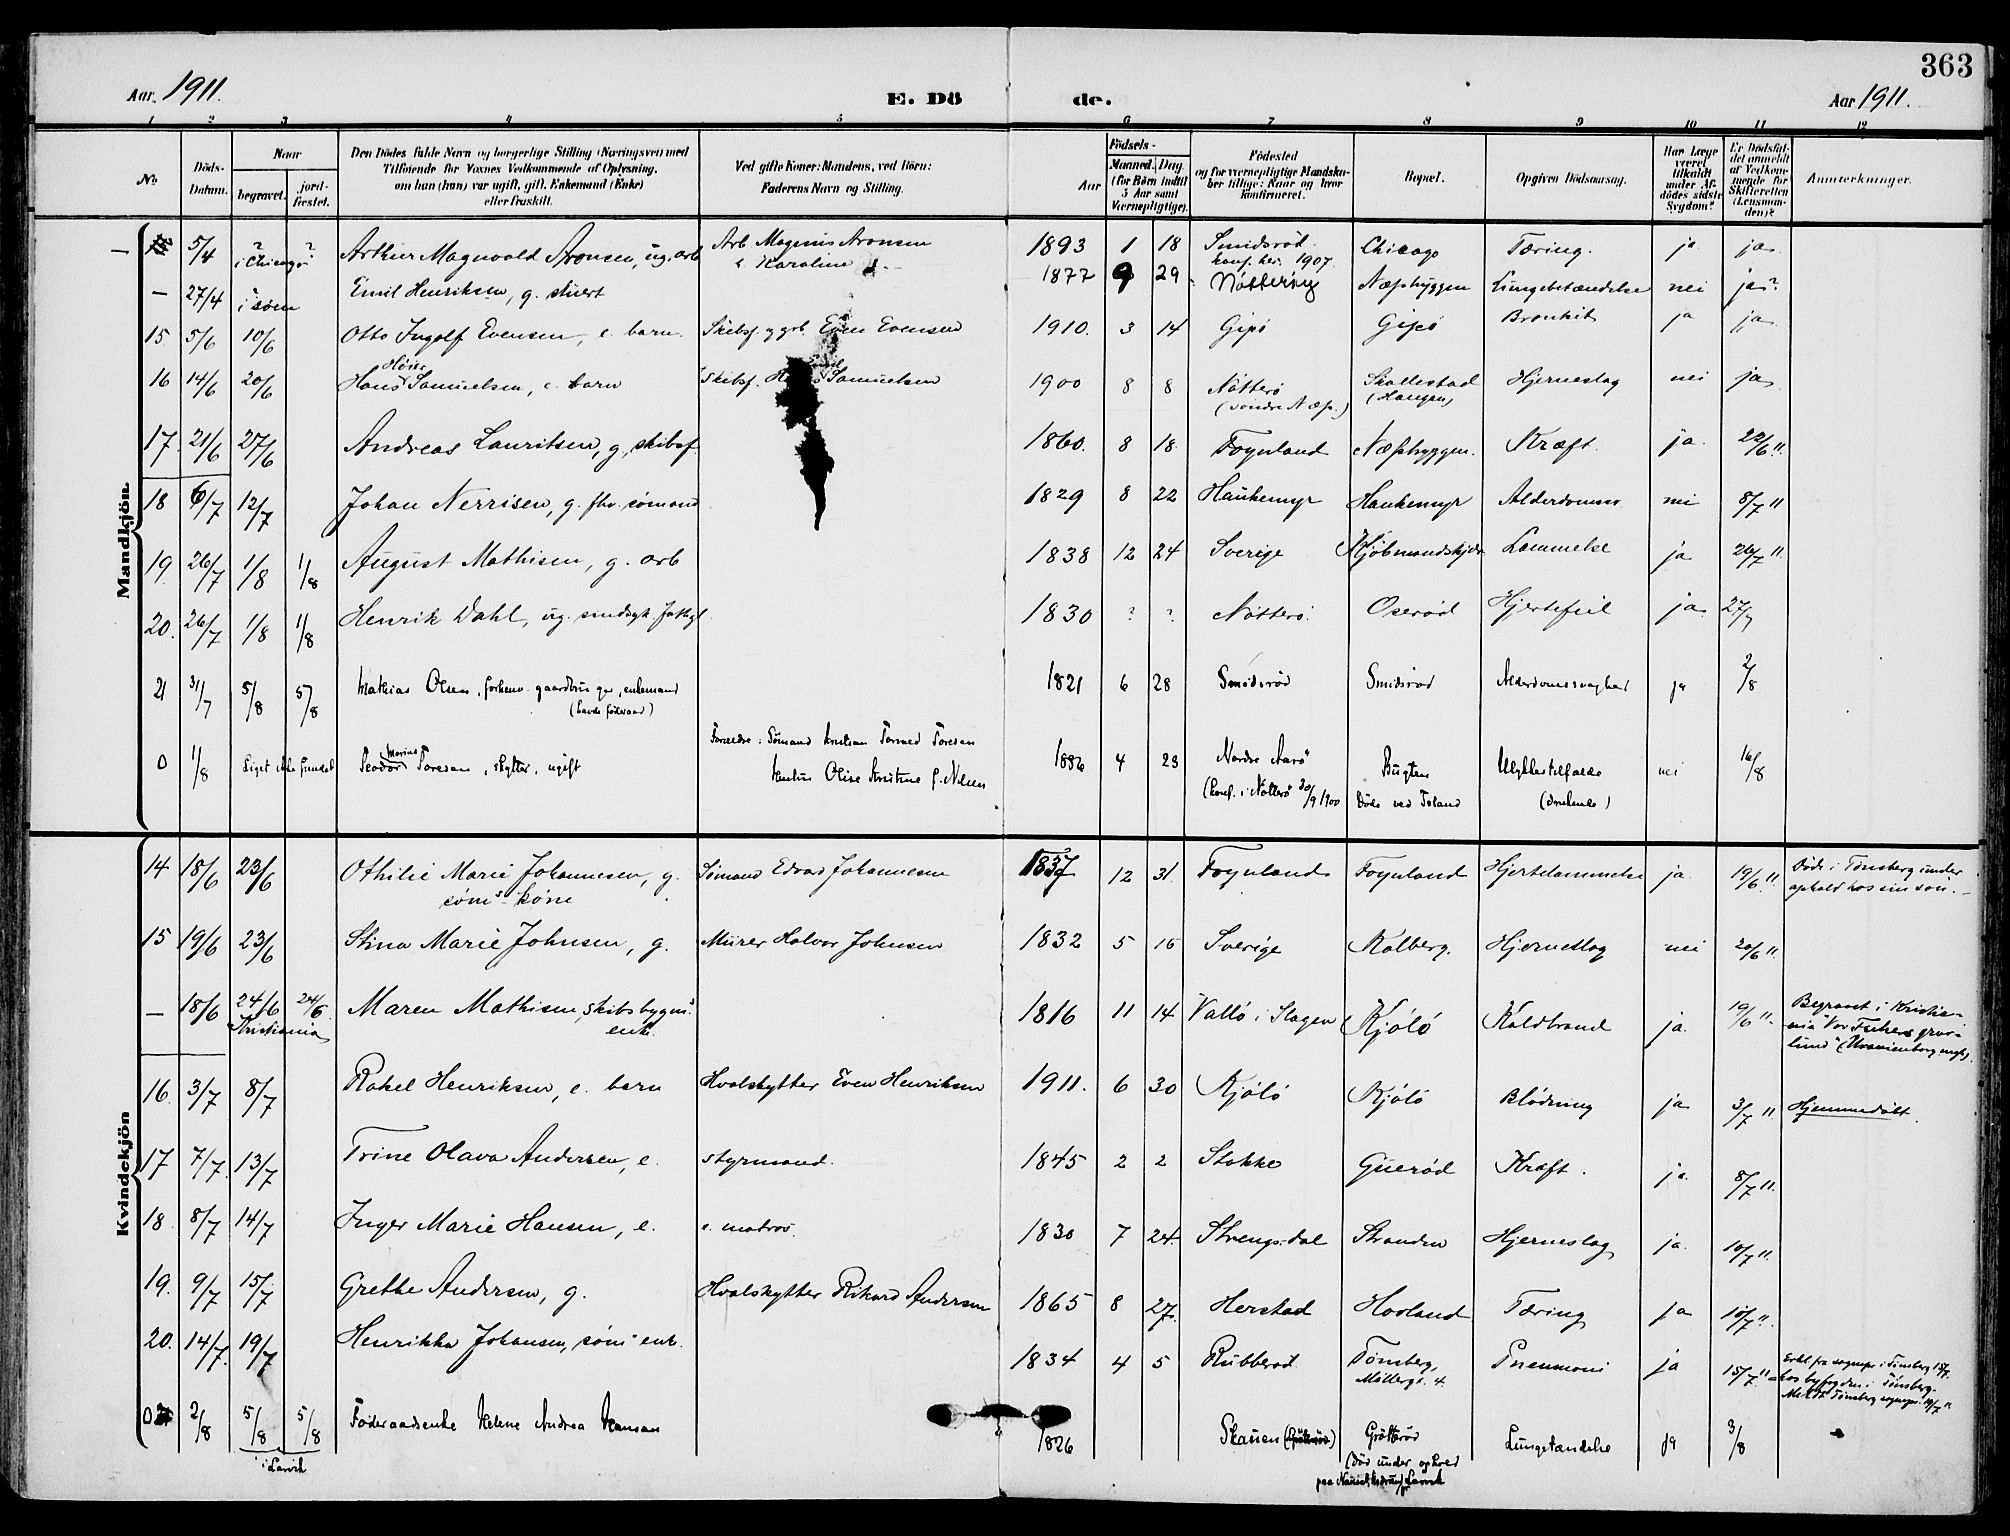 363
Aar. 1911.
E. Dö de.
Aar 1911.
1 2 3 4 5 6 7 8 9 10 11 12
No
Döds-Datum.
Naar
begravet.
jord-fæstet.
Den Dödes fulde Navn og borgerlige Stilling (Næringsvei) med
Tilføiende for Voxnes Vedkommende af Oplysning,
om han (hun) var ugift, gift, Enkemand (Enke)
eller fraskilt.
Ved gifte Koner: Mandens, ved Börn:
Faderens Navn og Stilling.
Aar
Födsels-
Maaned. Dag.
(for Börn indtil
5 Aar samt
Værnepligtige).
Födested
og for værnepligtige Mandska-
ber tillige: Naar og hvor
konfirmeret.
Bopæl.
Opgiven Dödsaarsag.
Har Læge
været
tilkaldt
under Af-
dödes sidste
Sygdom?
Er Dödsfal-
det anmeldt
af Vedkom-
mende for
Skifteretten
(Lensman-
den)?
Anmærkninger.
Mandkjön.
— 5/4 ? i Chicago ? Arthur Magnvald Aronsen, ug. arb Arb Magnus Aronsen 1893 1 18 Smidsrød Chicago Tæring. ja ja
Karoline konf. her. 1907.
— 27/4 ? i søen Emil Henriksen, g. stuert 1877 9 29 Nøtterøy Næsbyggen Lungebetændelse nei ja?
15 5/6 10/6 Otto Ingolf Evensen, e. barn. Skibsf. g grb. Even Evensen 1910. 3 14 Gipø Gipø Bronkit ja ja
16 14/6 20/6 Hans Samuelsen, e. barn Skibsf. Samuelsen 1900 8 8 Nøtterø Skallestad Hjerneslag nei ja
(søndre Næs.) (Haugen)
17. 21/6 27/6 Andreas Lauritsen, g, skibsf. 1860. 8 18 Føynland Næsbyggen. Kræft. ja. 22/6 11.
18 6/7 12/7 Johan Nerrisen, g. fhv. sømand 1829 8 22 Haukemyr Haukemyr Alderdomssv nei 8/7 11
19. 26/7 1/8 1/8 August Mathisen, g. arb 1838 12 24 Sverige Kjøbmandskjær Lammelse ja 26/7 11.
20. 26/7 1/8 1/8 Henrik Dahl, ug. sindsyk. fattigl 1830 ? ? Nøtterø Oserød Hjertefeil ja 27/7
21 31/7 5/8 5/8 Mathias Olsen, forhenv. gaardbruger, enkemand 1821 6 28 Smidsrød Smidsrød Alderdomssvaghed ja 2/8
(havde føderaad)
0 1/8 Liget ikke fundet Teodor Marius Toresen, skytter, ugift Forældre: Sømand Kristian Tormod Toresen 1886 4 23 Nordre Aarø Bugten Ulykkestilfælde nei 16/8
Hustru Olise Kristine f. Nilsen (konf. i Nøtterø 30/9 1900 Døde ved Island (druknede)
Kvindekjön
14 18/6 23/6 Othilie Marie Johannesen, g. Sømand Edvard Johannesen 1837 12 31. Føynland Føynland Hjertelammelse ja. 19/6 11. Døde i Tønsberg under
søms kone ophold hos sin søn. —
15 19/6 23/6 Stina Marie Johnsen, g. Murer Halvor Johnsen 1832 5 16 Sverige Kolberg. Hjerneslag nei 20/6 11.
— 18/6 24/6 24/6 Maren Mathisen, skibsbygm. 1816 11 14 Vallø i Slagen Kjøłø Koldbrand ja. 19/6 11. Begravet i Kristia-
Kristiania enke. nia "Vor Frelsers grav-
lund" (Uranienborg mgh).
16. 3/7 8/7 Rakel Henriksen, e. barn Hvalskytter Even Henriksen 1911. 6 30 Kjølø Kjølø Blødning ja 3/7 11. Hjemmedøbt.
17 7/7. 13/7 Trine Olava Andersen, e. styrmand. 1845 2 2 Stokke Guerød Kræft. ja. 8/7 11.
18. 8/7 14/7 Inger Marie Hansen, e. e. matros. 1830 7 24. Strengsdal Stranden Hjerneslag ja. 10/7 11.
19. 9/7 15/7 Grethe Andersen, g. Hvalskytter Rikard Andersen 1865 8 27. Herstad Hovland Tæring ja 10/7 11.
20. 14/7. 19/7 Henrikka Johansen, søm enk. 1834 4 5 Rubberød Tønsberg, Pneumoni ja 15/7 11
Møllerg. 4.
0 2/8 5/8 5/8 Føderaadsenke Helene Andrea Hansen 1826 Skauen Grøtterød Lungetændelse ja 3/8
i Larvik (Død under ophold